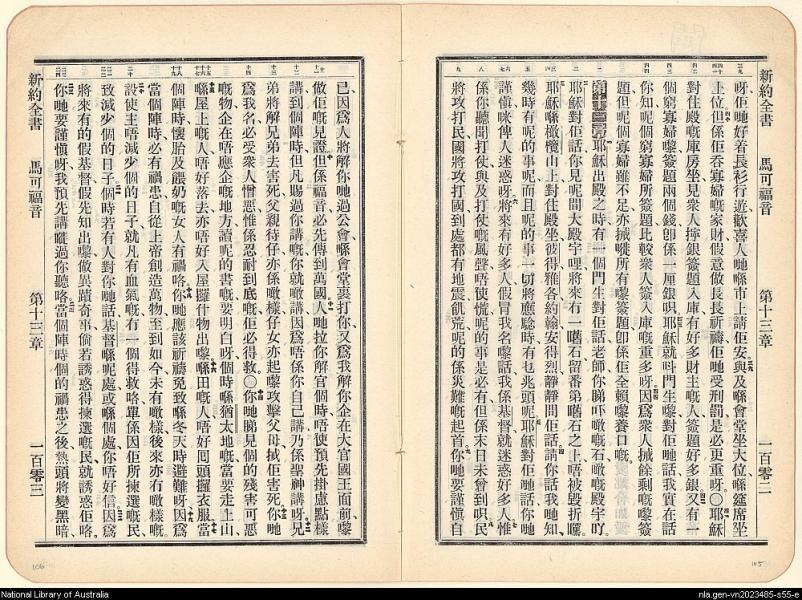 新約全書 馬可福音 第十三章 一百零二
呀佢哋好着長衫行遊歡喜人哋喺市上請佢安與及喺會堂坐大位喺筵席坐
上位但係佢吞寡婦嘅家財假意做長長祈禱佢哋受刑罰是必更重呀〇耶穌
對住殿嘅庫房坐見衆人擰銀簽題入庫有好多財主嘅人簽題好多銀又有一
個窮寡婦嚟簽題兩個錢卽係一厘銀呮耶穌就呌門生嚟對佢哋話我實在話
你知呢個窮寡婦所簽題比較衆人簽入庫嘅重多呀因爲衆人揻餘剩嘅嚟簽
題但呢個寡婦雖不足亦揻嘥所有嚟簽題卽係佢全賴嚟養口嘅
第十三章耶穌出殿之時有一個門生對佢話老師你睇吓噉嘅石噉嘅殿宇吖
耶穌對佢話你見呢間大殿宇哩將來有一嚿石留番第嚿石之上唔被毀折囇
耶穌喺橄欖山上對住殿坐彼得雅各約翰安得烈靜靜問佢話請你話我哋知
幾時有呢的事呢而且呢的事一切將應騐時有乜兆頭呢耶穌對佢哋話你哋
謹愼咪俾人迷惑呀將來有好多人假冒我名嚟話我係基督就迷惑好多人惟
係你聽聞打仗與及打仗嘅風聲唔使慌呢的事是必有但係末日未曾到呮民
將攻打民國將攻打國到處都有地震飢荒呢的係災難嘅起首你哋要謹愼自
新約全書 馬可福音 第十三章 一百零三
己因爲人將解你哋過公會喺會堂裏打你又爲我解你企在大官國王面前嚟
做佢嘅見證但係福音必先傳到萬國人哋拉你解官個時唔使預先掛慮點樣
講到個陣時但凡賜過你講嘅你就噉講因爲唔係你自己講乃係聖神講呀兄
弟將解兄弟去害死父親待仔亦係噉樣仔女亦起嚟攻擊父母揻佢害死你哋
爲我名必受衆人憎惡惟係忍耐到底嘅佢必得救〇你哋睇見個的殘害可惡
嘅物企在唔應企嘅地方讀呢的書嘅要明白呀個時喺猶太地嘅當要走上山
喺屋上嘅人唔好落去亦唔好入屋攞什物出嚟喺田嘅人唔好囘頭攞衣服當
個陣時懷胎及餵奶嘅女人有禍咯你哋應該祈禱免致喺冬天時避難呀因爲
當個陣時必有禍患自從上帝創造萬物至到如今未有噉樣後來亦冇噉樣嘅
設使主唔減少個的日子就凡有血氣嘅冇一個得救咯單係因佢所揀選嘅民
致減少個的日子個時若有人對你哋話基督喺呢處或喺個處你唔好信因爲
將來有的假基督假先知出嚟做異蹟奇事倘若誘惑得揀選嘅民就誘惑佢咯
你哋要謹愼呀我預先講嘥過你聽咯當個陣時個的禍患之後熱頭將變黑暗
106
105
National Library of Australia
nla.gen-vn2023485-s55-e